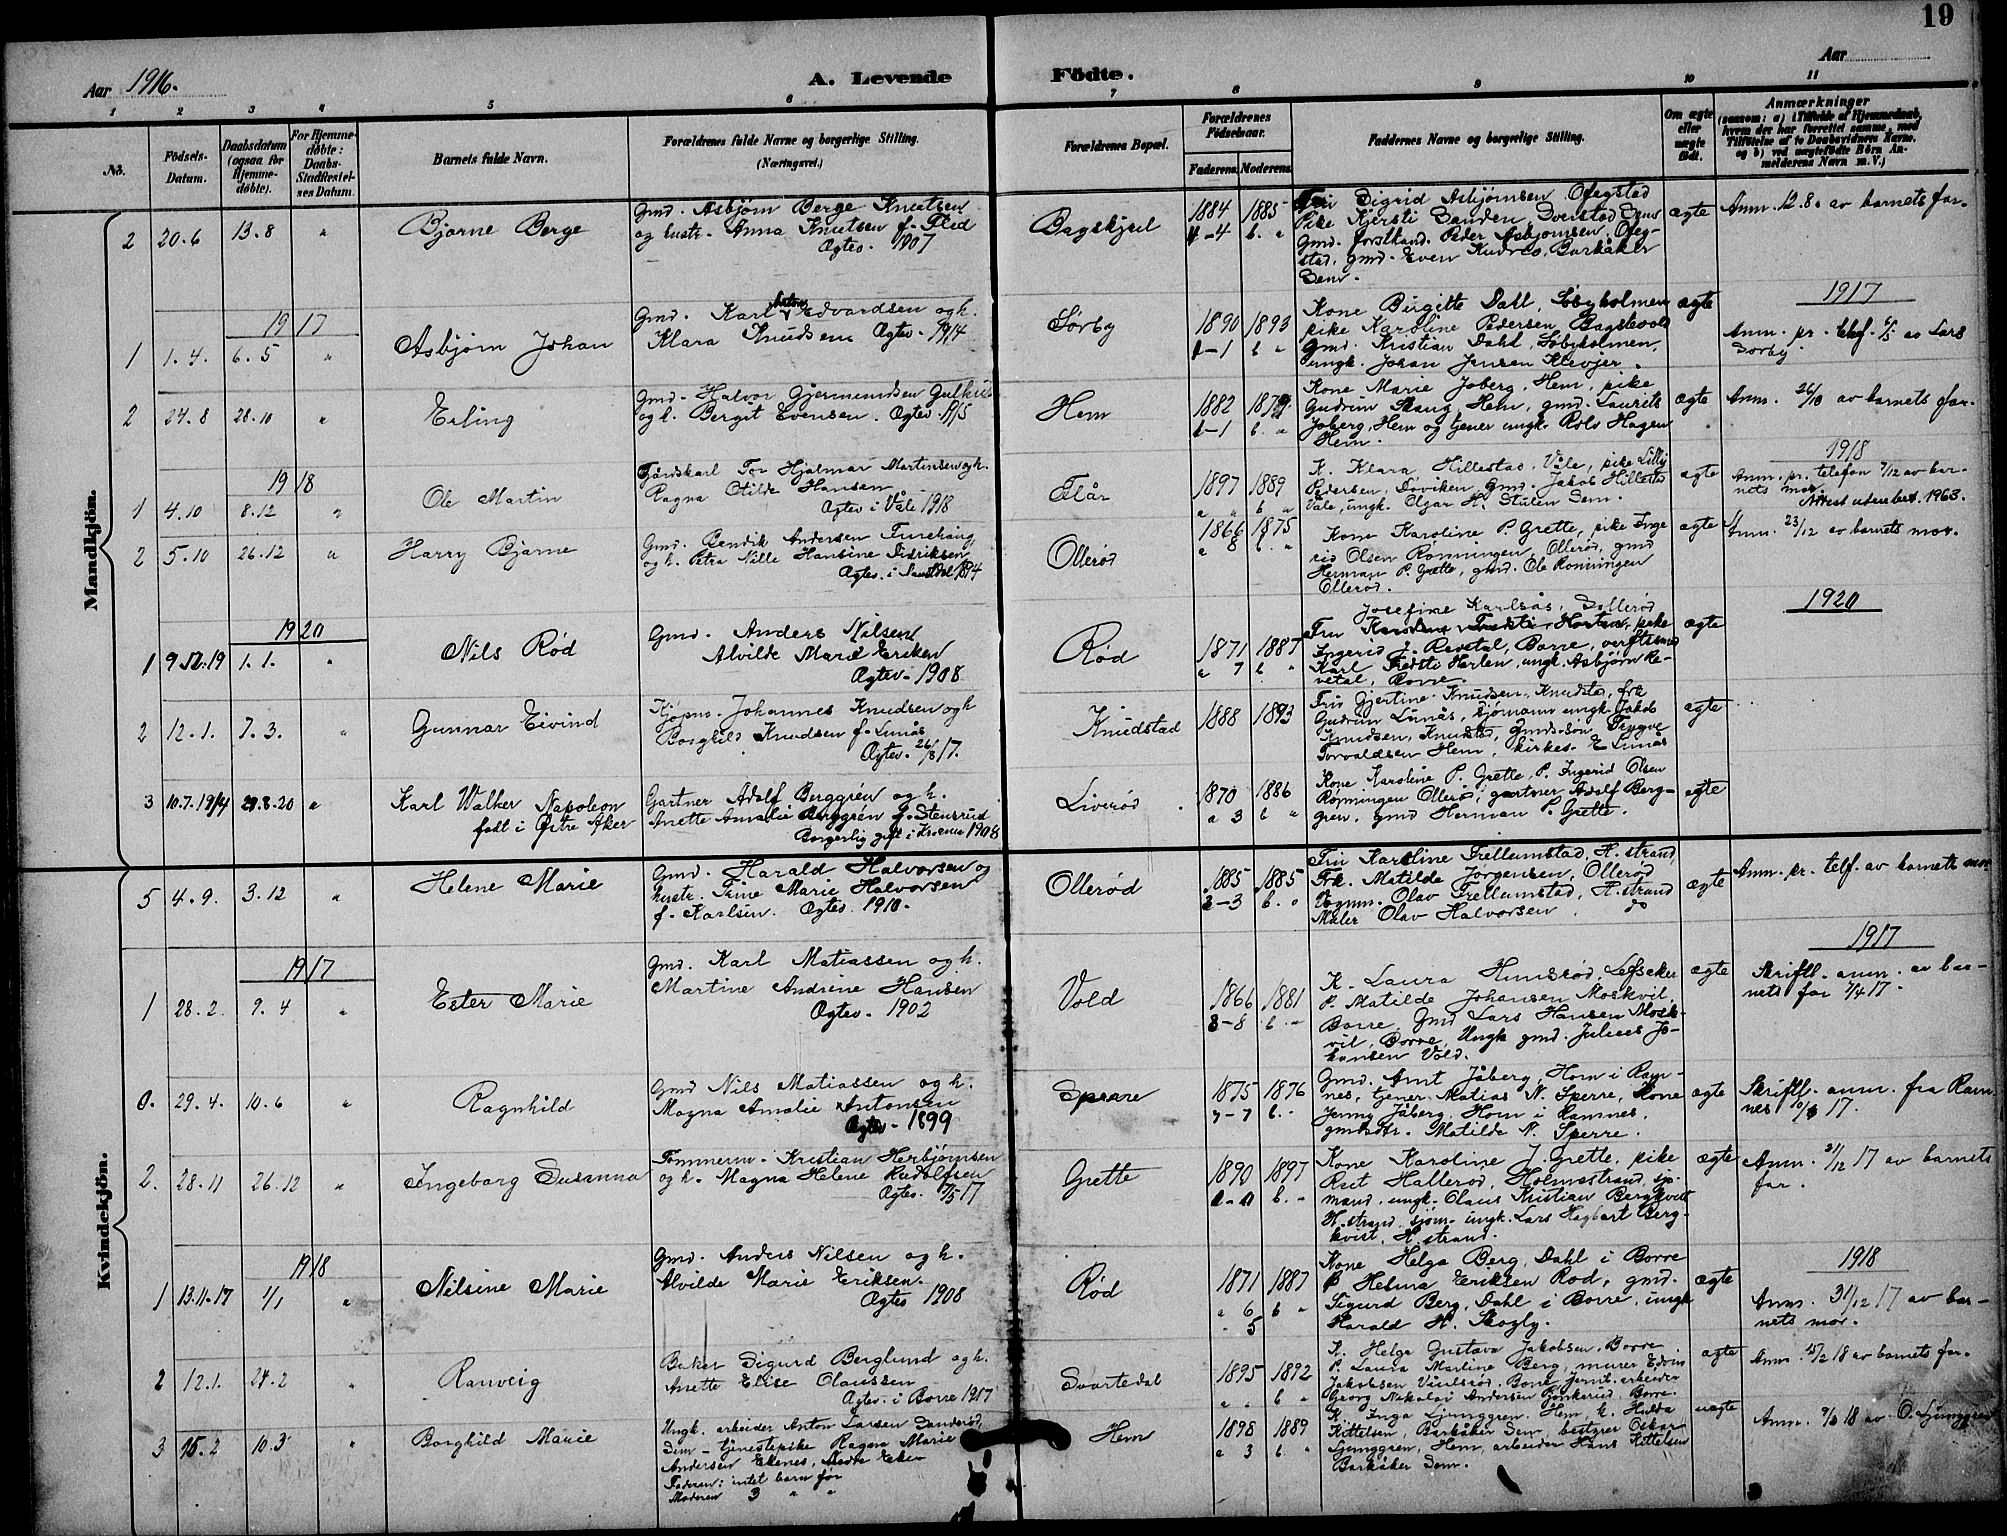 19
Aar 1916.
A. Levende Födte.
Aar
1 2 3 4 5 6 7 8 9 10 11
No.
Födsels-Datum.
Daabsdatum (ogsaa for Hjemmedöbte).
For Hjemmedöbte: Daabs-Stadfestelses Datum.
Barnets fulde Navn.
Forældrenes fulde Navne og borgerlige Stilling. (Næringsvei.)
Forældrenes Bopæl.
Forældrenes Födselsaar.
Faderens. Moderens.
Faddernes Navne og borgerlige Stilling.
Om ægte eller uægte födt.
Anmærkninger
(saasom: a) i Tilfælde af Hjemmedaab, hvem der har forrettet samme, med Tilföielse af to Daabsvidners Navne, og b) ved uægtefödte Börn Anmelderens Navn m. V.)
Mandkjön.
2 20.6 13.8 " Bjarne Berge
Gmd. Asbjørn Berge Knutsen
og hustr. Anna Knutsen f. Flid
Ægtev. 1907
Bagskjul
1884 1885
4-4 b. "
Fru Sigrid Asbjørnsen Ofegstad
Pike Kjersti Sanden, Sverstad Sem
Gmd. forstkand. Peder Asbjørnsen, Ofeg-
stad, gmd. Even Kudres, Barkåker
Sem.
ægte
Anm. 12.8. av barnets far.
1917
1 1.4. 6.5 " Asbjørn Johan
Gmd. Karl Anton Edvardsen og h.
Klara Knudsen Ægtev. 1914
Sørby
1890 1893
1-1 b "
Kone Birgitte Dahl,Løbyholmen
pike Karoline Pedersen Bagstevold
Gmd. Kristian Dahl, Løbyholmen,
ungk. Johan Jensen Klevjer.
ægte
1917
Anm. pr. telef. 6/5 av Lars
Sørby.
2 24.8 28.10 " Erling
Gmd. Halvor Gjermundsen Gulkil
og h. Bergit Evensen. Ægtev. 1915
Hem
1882 1879
1-1 b. "
Kone Marie Joberg, Hem, pike
Gudrun Skaug, Hem, gmd. Laurits
Joberg, Hem og tjener ungk. Rolv Hagen
Hem.
ægte
Anm. 26/10 av barnets far.
1918
1 4.10 8.12 " Ole Martin
Gårdskarl Tor Hjalmar Martinsen og h.
Ragna Otilde Hansen
Ægtev. i Våle 1918
Flår
1897 1889
" " b "
K. Klara Hillestad, Våle, pike Lilly
Pedersen, Tøviken, Gmd. Jakob Hillestad
Våle, ungk. Olgar H. Stulen Sem.
ægte
1918
Anm. pr. telefon 7/12 av bar-
nets mor.
Attest utskrevet 1963.
2 5.10 26.12 " Harry Bjarne
Gmd. Bendik Andersen Furehaug
og h. Petra Nille Hansine Didriksen
Ægtev. i Naustdal 1894
Ollerød
1866 1875
" 8 b. "
Kone Karoline P. Grette, pike Inge
rid Olsen Rønningen, Ollerød, gmd
Herman P. Grette, gmd. Ole Rønningen
Ollerød.
ægte
Anm. 23/12 av barnets mor.
1920
1 9.12.19 1.1. " Nils Rød
Gmd. Anders Nilsen
Alvilde Marie Eriksen
Ægtev. 1908
Rød
1871 1887
" 7 b "
Josefine Karlsås, Sollerød
Ingerid J. Revetal, Borre, verftsmd
Karl Tredsti Horten, ungk. Asbjørn Re-
vetal, Borre.
ægte
1920
2 12.1. 7.3. " Gunnar Eivind
Kjøpm. Johannes Knudsen og h
Borghild Knudsen f. Linås
Ægtev. 26/8 17.
Knudstad
1888 1893
Fru Gjertine Knudsen, Knudstad, frk
Gudrun Linås, sjømann ungk. Jakob
Knudsen, Knudstad, gmds.søn Trygve
Torvaldsen Hem, kirkes. E Linås
ægte
3 10.7.1914 29.8.20 " Karl Walker Napoleon
født i Østre Aker
Gartner Adolf Berggren og h.
Anette Amalie Berggren f. Stensrud
Borgerlig gift i Kr.enia 1908
Liverød
1870 1886
" 3 b "
Kone Karoline P. Grette, P. Ingerid Olsen
Rønningen Ollerød, gartner Adolf Berg-
gren, gmd Herman P. Grette.
ægte
Kvindekjön.
5 4.9. 3.12 " Helene Marie
Gmd. Harald Halvorsen og
hustr. Trine Marie Halvorsen
f. Karlsen. Ægtev. 1910.
Ollerød
1885 1885
3-3 b. "
Fru Karoline Frellumstad, H.strand
Frk. Matilde Jørgensen, Ollerød
Vognm. Olav Frellumstad, H.strand
Maler Olav Halvorsen do
ægte
Anm. pr. telf. av barnets mor
1917
1 28.2. 9.4 " Ester Marie
Gmd. Karl Matiassen og h.
Martine Andrine Hansen
Ægtev. 1902
Vold
1866 1881
8-8 b. "
K. Laura Himsrød, Lefseker
P. Matilde Johansen Moskvil,
Borre. Gmd Lars Hansen Mosk-
vil, Borre, Ungk gmd. Julius Jo-
hansen Vold.
ægte
1917
Skriftl. anm. av bar-
nets far 7/4 17.
0. 29.4. 10.6 " Ragnhild
Gmd Nils Matiassen og h.
Magna Amalie Antonsen
Ægtev. 1899
Sperre
1875 1876
7-7 b. "
Gmd. Amt Jåberg, Hem i Ram-
nes, tjener Matias N. Sperre, Kone
Jenny Jåberg, Hem i Ramnes,
gmdsdtr. Matilde N. Sperre.
ægte
Skriftl. anm. fra Ram
nes 10/6 17.
2. 28.11 26.12 " Ingeborg Susanna
Tømmerm. Kristian Herbjørnsen
og h. Magna Helene Rudolfsen
Ægtev. 17/5 17
Grette
1890 1897
0-0 b. "
Kone Karoline J. Grette, pike
Rut Hallerød, Holmestrand, sjø-
mand, ungk. Olaus Kristian Bergkvist
H.strand, sjøm. ungk. Lars Hagbart Berg-
kvist, H.strand.
ægte
Anm. 31/12 17 av barnets
far.
1918
1 13.11.17 1/1 " Nilsine Marie
Gmd. Anders Nilsen og h.
Alvilde Marie Eriksen.
Ægtev 1908
Rød
1871 1887
" 6 b "
" 5
Kone Helga Berg, Dahl i Borre
P Helma Eriksen Rød, gmd.
Sigurd Berg, Dahl i Borre, ungk
Harald H. Skogly.
ægte
1918
Anm. 31/12 17 av bar-
nets mor.
2 12.1. 24.2 " Ranveig
Baker Sigurd Berglund og h.
Anette Elise Olaussen
Ægtev. i Borre 1917
Svartedal
1895 1892
" " b "
K. Helga Gustava Jakobsen, Borre
P. Laura Marline Berg, murer Edvin
Jakobsen Viulsrød, Borre, Jernb. arbeider
Georg Nikolai Andersen Bjørkerud, Borre.
ægte
Anm. 15/2 18 av barnets far.
3 15.2 10.3 " Borghild Marie
Ungk. arbeider Anton Larsen Sanderød,
Sem - tjenestepike Ragna Marie
Andersen Ekenes, Nedre Eker
Faderen: intet barn før
Moderen 3 " "
Hem
1898 1889
" 3 b. "
K. Inga Ljunggren, Hem K. Hulda
Kittelsen, Barkåker Sem, bestyrer Oskar
Ljunggren, Hem, arbeider Hans Kittelsen
Barkåker Sem.
uægte
Anm. 7/3 18 av O. Ljunggren